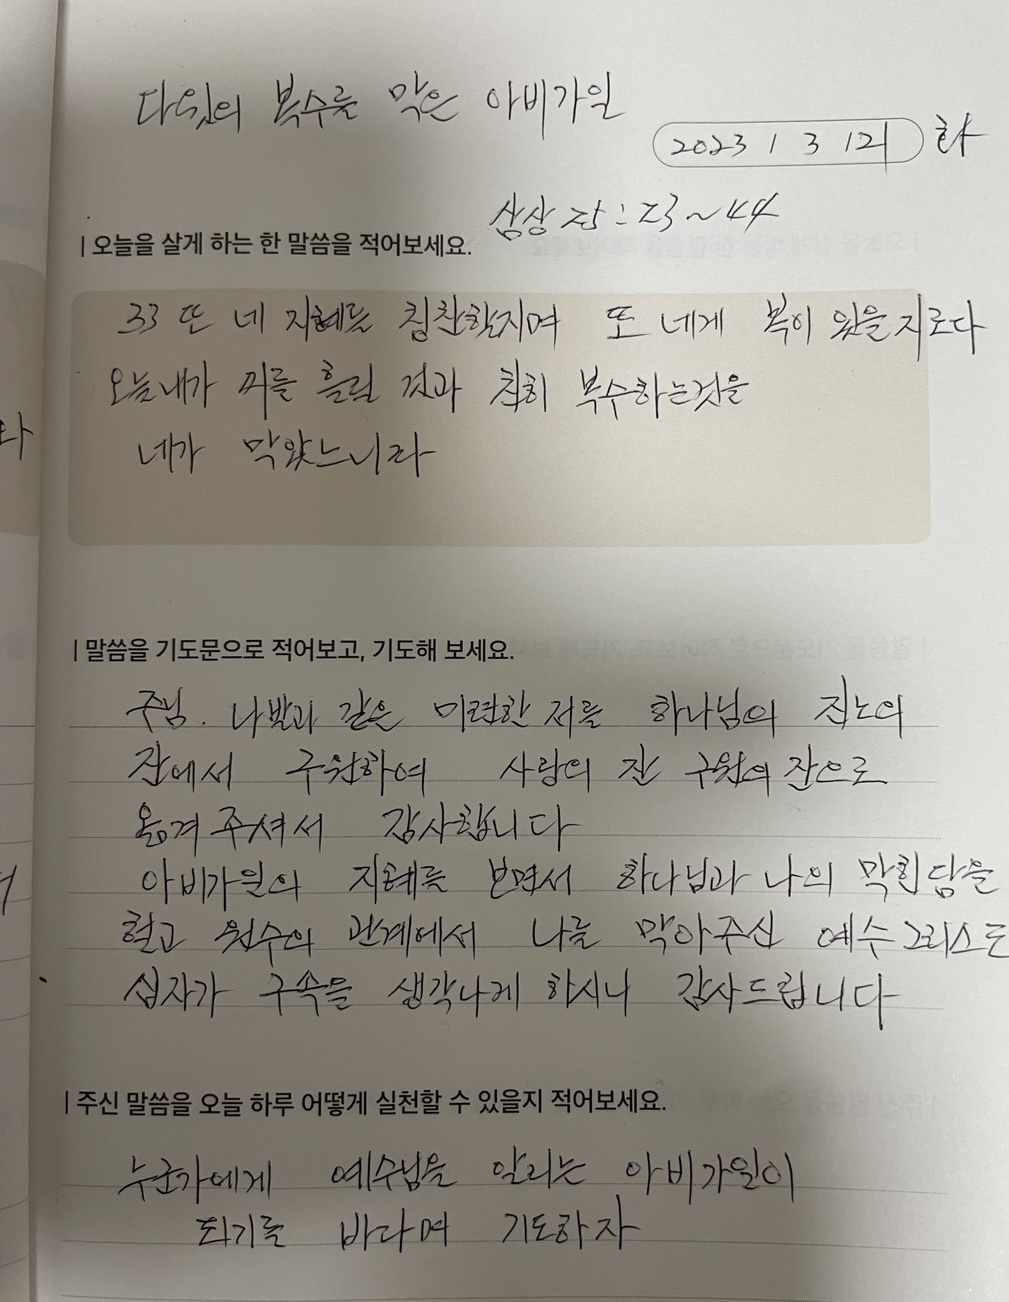 다윗의 복수를 막은 아비가일
2023 1 3 화
삼상 25 : 23 ~ 44
| 오늘을 살게 하는 한 말씀을 적어보세요.
33 또 네 지혜를 칭찬할지며 또 네게 복이 있을지로다
오늘 내가 피를 흘릴 것과 친히 복수하는것을
네가 막았느니라
| 말씀을 기도문으로 적어보고, 기도해 보세요.
주님. 나발과 같은 미련한 저를 하나님의 진노의
잔에서 구원하여 사랑의 잔 구원의 잔으로
옮겨 주셔서 감사합니다
아비가일의 지혜를 보면서 하나님과 나의 막힌 담을
헐고 원수의 관계에서 나를 막아주신 예수그리스도
십자가 구속을 생각나게 하시니 감사드립니다
| 주신 말씀을 오늘 하루 어떻게 실천할 수 있을지 적어보세요.
누군가에게 예수님을 알리는 아비가일이
되기를 바라며 기도하자